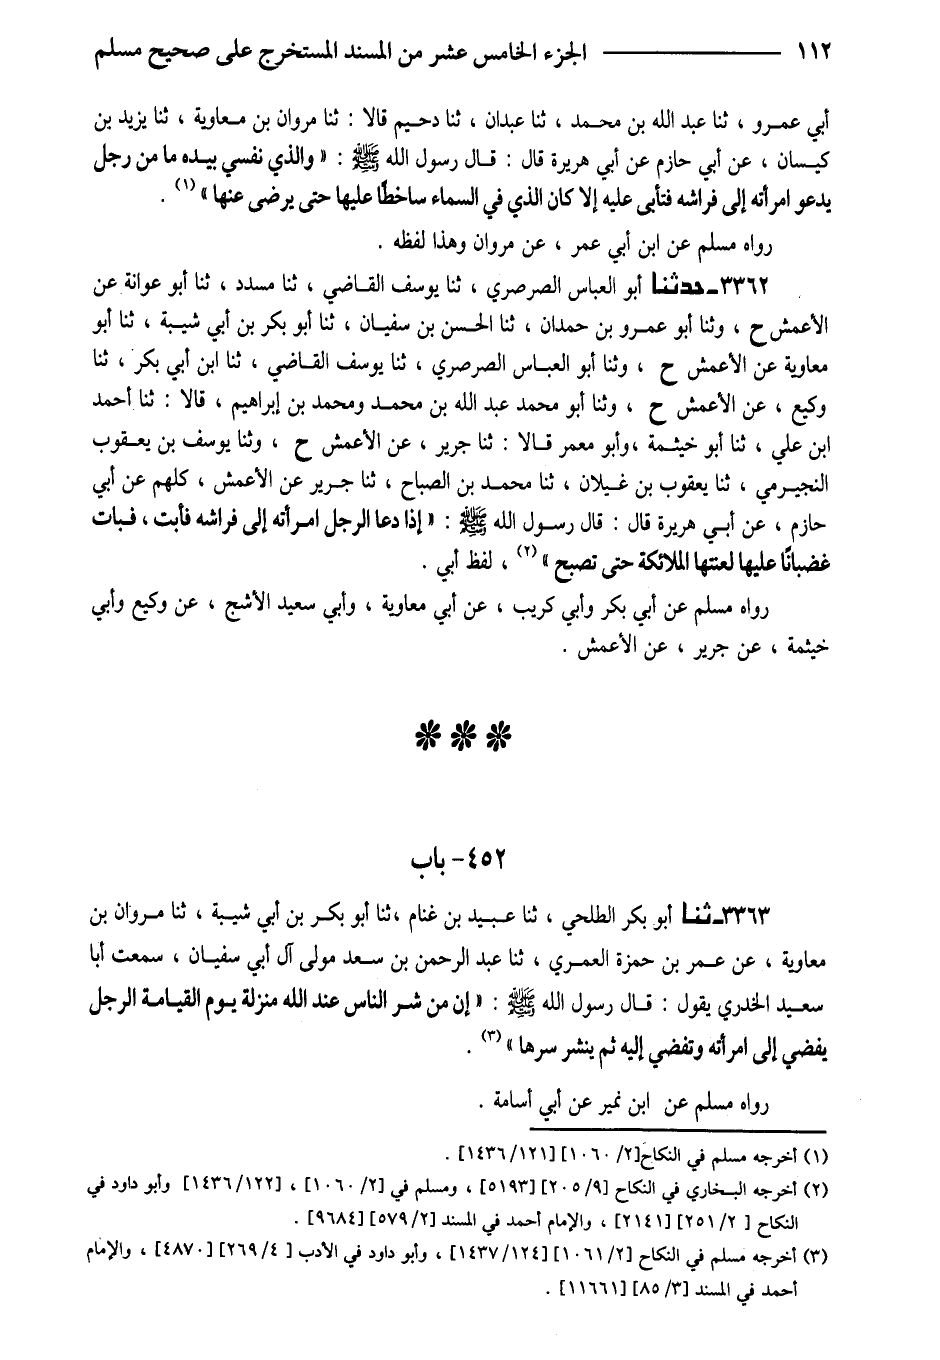 ١١٢ ــــــــــ الجزء الخامس عشر من المسند المستخرج على صحيح مسلم
أبي عمرو ، ثنا عبد الله بن محمد ، ثنا عبدان ، ثنا دحيم قالا : ثنا مروان بن معاوية ، ثنا يزيد بن
كيسان ، عن أبي حازم عن أبي هريرة قال : قال رسول الله ﷺ : « والذي نفسي بيده ما من رجل
يدعو امرأته إلى فراشه فتأبى عليه إلا كان الذي في السماء ساخطًا عليها حتى يرضى عنها » (١) .
رواه مسلم عن ابن أبي عمر ، عن مروان وهذا لفظه .
٣٣٦٢ـ حدثنا أبو العباس الصرصري ، ثنا يوسف القاضي ، ثنا مسدد ، ثنا أبو عوانة عن
الأعمش ح ، وثنا أبو عمرو بن حمدان ، ثنا الحسن بن سفيان ، ثنا أبو بكر بن أبي شيبة ، ثنا أبو
معاوية عن الأعمش ح ، وثنا أبو العباس الصرصري ، ثنا يوسف القاضي ، ثنا ابن أبي بكر ، ثنا
وكيع ، عن الأعمش ح ، وثنا أبو محمد عبد الله بن محمد ومحمد بن إبراهيم ، قالا : ثنا أحمد
ابن علي ، ثنا أبو خيثمة ،وأبو معمر قالا : ثنا جرير ، عن الأعمش ح ، وثنا يوسف بن يعقوب
النجيرمي ، ثنا يعقوب بن غيلان ، ثنا محمد بن الصباح ، ثنا جرير عن الأعمش ، كلهم عن أبي
حازم ، عن أبي هريرة قال : قال رسول الله ﷺ : « إذا دعا الرجل امرأته إلى فراشه فأبت ، فبات
غضبانًا عليها لعنتها الملائكة حتى تصبح » (٢) ، لفظ أبي .
رواه مسلم عن أبي بكر وأبي كريب ، عن أبي معاوية ، وأبي سعيد الأشج ، عن وكيع وأبي
خيثمة ، عن جرير ، عن الأعمش .
٤٥٢- باب
٣٣٦٣ـ ثنا أبو بكر الطلحي ، ثنا عبيد بن غنام ،ثنا أبو بكر بن أبي شيبة ، ثنا مروان بن
معاوية ، عن عمر بن حمزة العمري ، ثنا عبد الرحمن بن سعد مولى آل أبي سفيان ، سمعت أبا
سعيد الخدري يقول : قال رسول الله ﷺ : « إن من شر الناس عند الله منزلة يوم القيامة الرجل
يفضي إلى امرأته وتفضي إليه ثم ينشر سرها » (٣) .
رواه مسلم عن ابن نمير عن أبي أسامة .
(١) أخرجه مسلم في النكاح[٢/ ١٠٦٠] [١٢١/ ١٤٣٦] .
(٢) أخرجه البخاري في النكاح [٩/ ٢٠٥] [٥١٩٣] ، ومسلم في [٢/ ١٠٦٠] ، [١٢٢/ ١٤٣٦] وأبو داود في
النكاح [ ٢/ ٢٥١] [٢١٤١] ، والإمام أحمد في المسند [٢/ ٥٧٩] [٩٦٨٤] .
(٣) أخرجه مسلم في النكاح [٢/ ١٠٦١] [١٢٤/ ١٤٣٧] ، وأبو داود في الأدب [ ٤/ ٢٦٩] [٤٨٧٠] ، والإمام
أحمد في المسند [٣/ ٨٥] [١١٦٦١] .